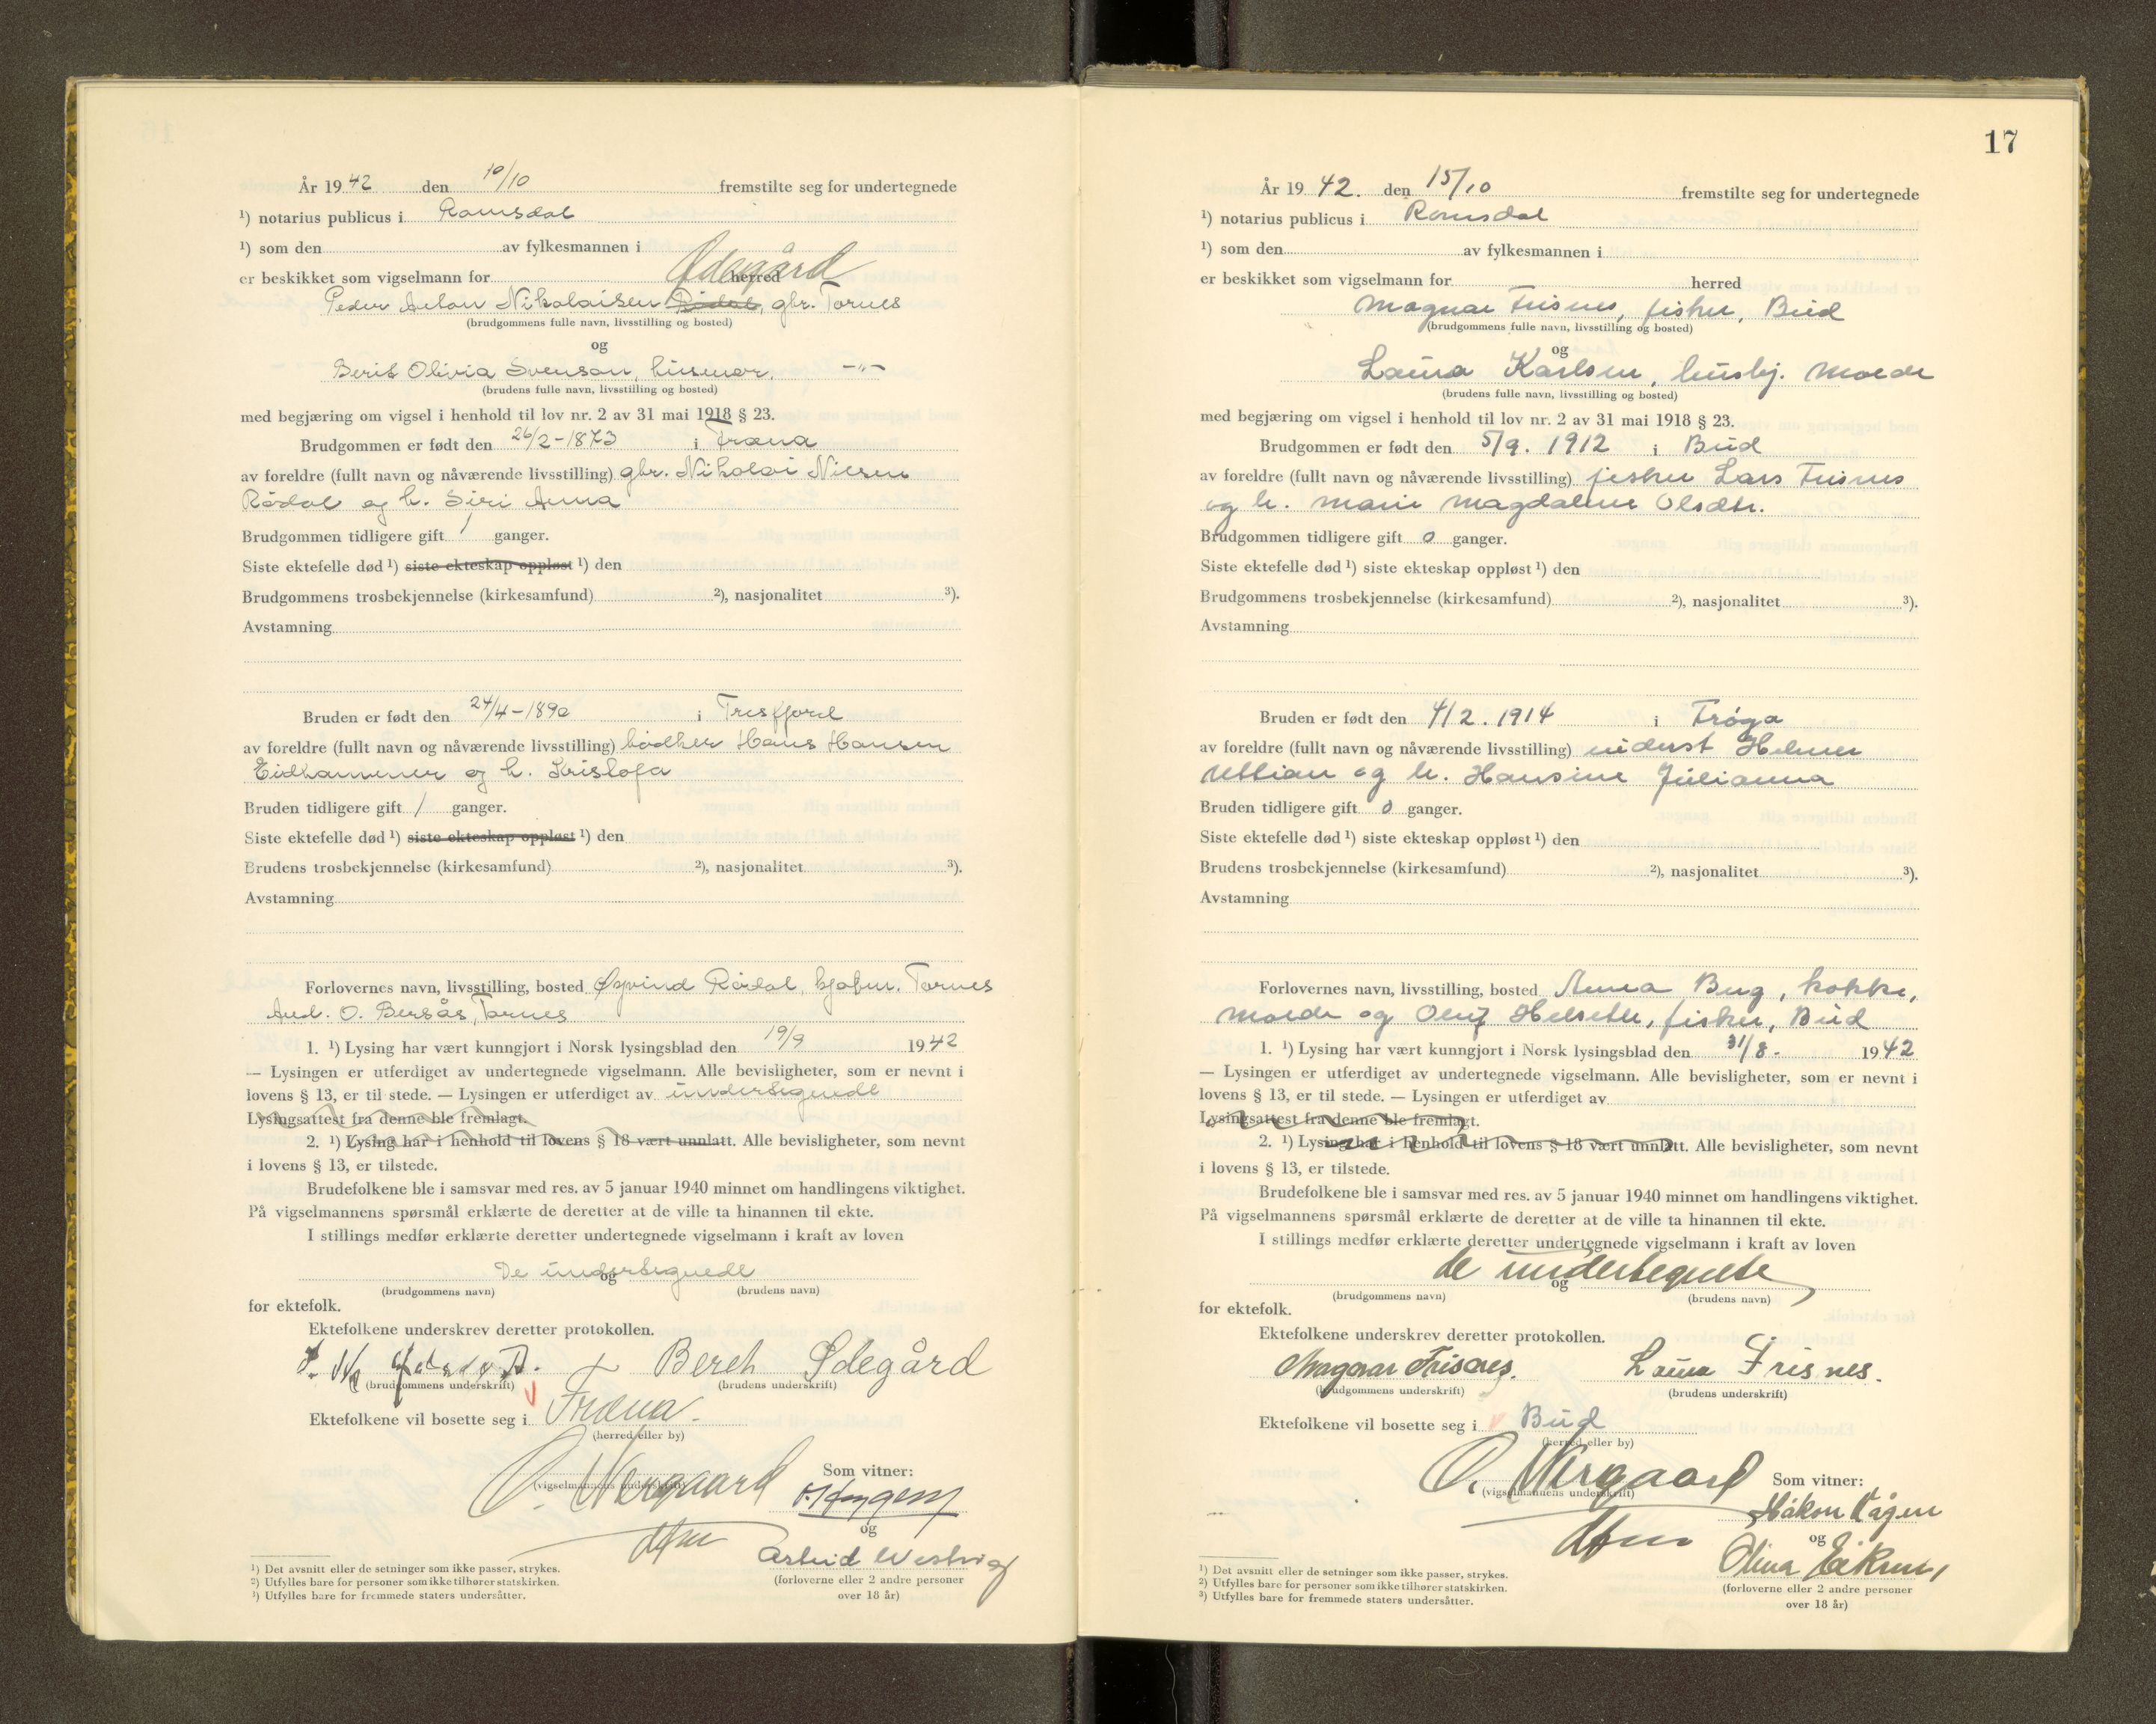 År 19 42 den 10/10 fremstilte seg for undertegnede
¹) notarius publicus i Romsdal
¹) som den av fylkesmannen i
er beskikket som vigselmann for herred
Ødegård
Peder Anton Nikolaisen Rødal, gbr. Tornes
(brudgommens fulle navn, livsstilling og bosted)
og
Berit Olivia Svenson, husmor, -"-
(brudens fulle navn, livsstilling og bosted)
med begjæring om vigsel i henhold til lov nr. 2 av 31 mai 1918 § 23.
Brudgommen er født den 26/2-1873 i Fræna
av foreldre (fullt navn og nåværende livsstilling) gbr. Nikolai Nilsen
Rødal og h. Siri Anna
Brudgommen tidligere gift 1 ganger.
Siste ektefelle død ¹) siste ekteskap oppløst ¹) den
Brudgommens trosbekjennelse (kirkesamfund) ²), nasjonalitet ³).
Avstamning
Bruden er født den 24/4-1890 i Tresfjord
av foreldre (fullt navn og nåværende livsstilling) bødker Hans Hansen
Eidhammer og h. Kristofa
Bruden tidligere gift 1 ganger.
Siste ektefelle død ¹) siste ekteskap oppløst ¹) den
Brudens trosbekjennelse (kirkesamfund) ²), nasjonalitet ³).
Avstamning
Forlovernes navn, livsstilling, bosted Øyvind Rødal, kjøbm. Tornes
And. O. Bersås, Tornes
1. ¹) Lysing har vært kunngjort i Norsk lysingsblad den 19/9 19 42
— Lysingen er utferdiget av undertegnede vigselmann. Alle bevisligheter, som er nevnt i
lovens § 13, er til stede. — Lysingen er utferdiget av undertegnede
Lysingsattest fra denne ble fremlagt.
2. ¹) Lysing har i henhold til lovens § 18 vært unnlatt. Alle bevisligheter, som nevnt
i lovens § 13, er tilstede.
Brudefolkene ble i samsvar med res. av 5 januar 1940 minnet om handlingens viktighet.
På vigselmannens spørsmål erklærte de deretter at de ville ta hinannen til ekte.
I stillings medfør erklærte deretter undertegnede vigselmann i kraft av loven
De undertegnede
og
(brudgommens navn) (brudens navn)
for ektefolk.
Ektefolkene underskrev deretter protokollen.
Bereh Ødegård
(brudgommens underskrift) (brudens underskrift)
Ektefolkene vil bosette seg i Fræna.
(herred eller by)
O. Nergaard
(vigselmannens underskrift)
Som vitner:
og
Astrid Westvig
(forloverne eller 2 andre personer
over 18 år)
¹) Det avsnitt eller de setninger som ikke passer, strykes.
²) Utfylles bare for personer som ikke tilhører statskirken.
³) Utfylles bare for fremmede staters undersåtter.
17
År 19 42. den 15/10 fremstilte seg for undertegnede
¹) notarius publicus i Romsdal
¹) som den av fylkesmannen i
er beskikket som vigselmann for herred
Magnar Frisnes, fisker, Bud
(brudgommens fulle navn, livsstilling og bosted)
og
Laura Karlsen, hushj. Molde
(brudens fulle navn, livsstilling og bosted)
med begjæring om vigsel i henhold til lov nr. 2 av 31 mai 1918 § 23.
Brudgommen er født den 5/9. 1912 i Bud
av foreldre (fullt navn og nåværende livsstilling) fisker Lars Frisnes
og h. Marie Magdalene Olsdtr.
Brudgommen tidligere gift 0 ganger.
Siste ektefelle død ¹) siste ekteskap oppløst ¹) den
Brudgommens trosbekjennelse (kirkesamfund) ²), nasjonalitet ³).
Avstamning
Bruden er født den 4/2. 1914 i Frøya
av foreldre (fullt navn og nåværende livsstilling) inderst Helmer
Uttian og h. Hansine Julianna
Bruden tidligere gift 0 ganger.
Siste ektefelle død ¹) siste ekteskap oppløst ¹) den
Brudens trosbekjennelse (kirkesamfund) ²), nasjonalitet ³).
Avstamning
Forlovernes navn, livsstilling, bosted Anna Berg, kokke,
Molde og Oluf Helseth, fisker, Bud
1. ¹) Lysing har vært kunngjort i Norsk lysingsblad den 31/8- 19 42
— Lysingen er utferdiget av undertegnede vigselmann. Alle bevisligheter, som er nevnt i
lovens § 13, er til stede. — Lysingen er utferdiget av
Lysingsattest fra denne ble fremlagt.
2. ¹) Lysing har i henhold til lovens § 18 vært unnlatt. Alle bevisligheter, som nevnt
i lovens § 13, er tilstede.
Brudefolkene ble i samsvar med res. av 5 januar 1940 minnet om handlingens viktighet.
På vigselmannens spørsmål erklærte de deretter at de ville ta hinannen til ekte.
I stillings medfør erklærte deretter undertegnede vigselmann i kraft av loven
de undertegnete
og
(brudgommens navn) (brudens navn)
for ektefolk.
Ektefolkene underskrev deretter protokollen.
Magnar Frisnes. Laura Frisnes.
(brudgommens underskrift) (brudens underskrift)
Ektefolkene vil bosette seg i Bud
(herred eller by)
O. Nergaard
(vigselmannens underskrift)
Som vitner:
Håkon Hagen
og
Olina Eikrem
(forloverne eller 2 andre personer
over 18 år)
¹) Det avsnitt eller de setninger som ikke passer, strykes.
²) Utfylles bare for personer som ikke tilhører statskirken.
³) Utfylles bare for fremmede staters undersåtter.